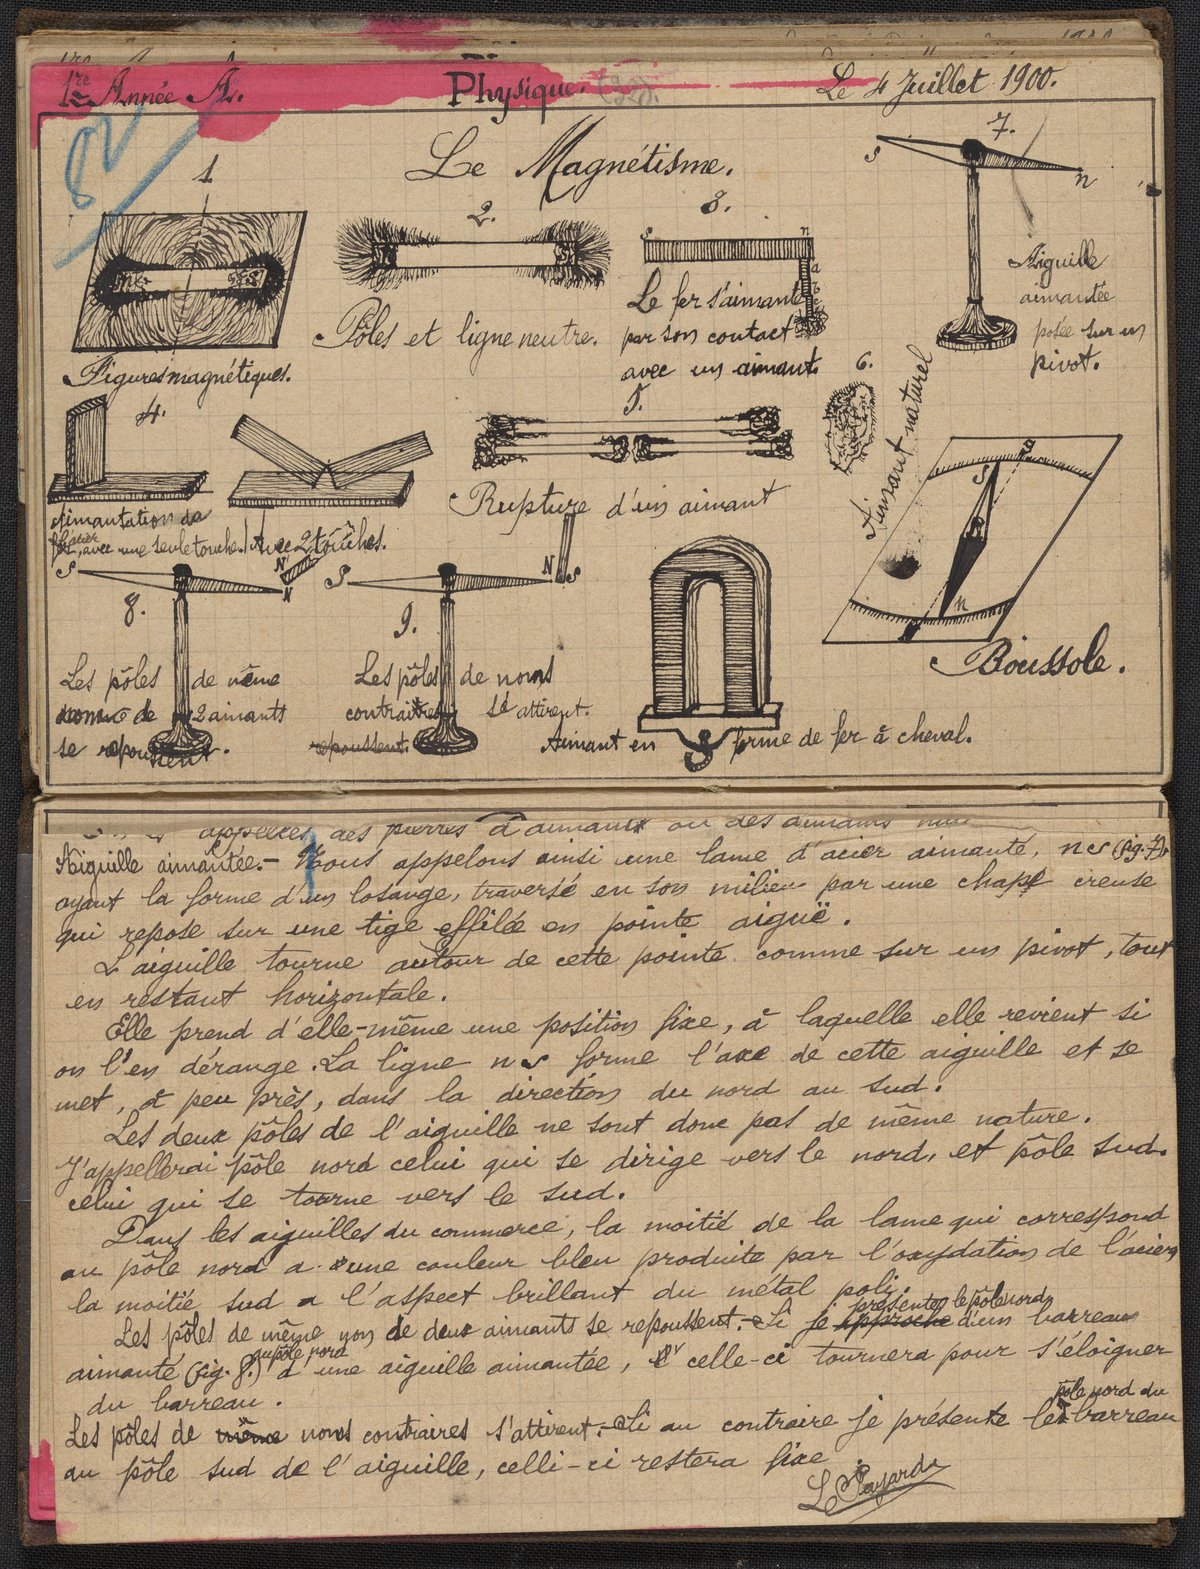 1re Année A.
Physique.
Le 4 Juillet 1900.
82
Le Magnétisme.
1.
Figures magnétiques.
2.
N
S
Pôles et ligne neutre.
3.
s
n
a
b
c
Le fer s'aimante
par son contact
avec un aimant.
7.
S
n
Aiguille
aimantée
posée sur un
pivot.
4.
Aimantation de
l'acier, avec une seule touche.
Avec 2 touches.
5.
Rupture d'un aimant
6.
Aimant naturel
S
n
Boussole.
8.
S
N
N
Les pôles de même
nom de 2 aimants
se repoussent.
9.
S
N
S
Les pôles de noms
contraires s'attirent.
repoussent.
Aimant en forme de fer à cheval.
appelées des pierres d'aimant ou des aimants
Aiguille aimantée.- Nous appelons ainsi une lame d'acier aimanté, ns (fig. 7),
ayant la forme d'un losange, traversé en son milieu par une chape creuse
qui repose sur une tige effilée en pointe aiguë.
L'aiguille tourne autour de cette pointe comme sur un pivot, tout
en restant horizontale.
Elle prend d'elle-même une position fixe, à laquelle elle revient si
on l'en dérange. La ligne ns forme l'axe de cette aiguille et se
met, à peu près, dans la direction du nord au sud.
Les deux pôles de l'aiguille ne sont donc pas de même nature.
J'appellerai pôle nord celui qui se dirige vers le nord, et pôle sud
celui qui se tourne vers le sud.
Dans les aiguilles du commerce, la moitié de la lame qui correspond
au pôle nord a une couleur bleu produite par l'oxydation de l'acier,
la moitié sud a l'aspect brillant du métal poli.
Les pôles de même nom de deux aimants se repoussent.- Si je approche présente le pôle nord d'un barreau
aimanté (fig. 8.) au pôle nord à une aiguille aimantée, celle-ci tournera pour s'éloigner
du barreau.
Les pôles de même noms contraires s'attirent.- Si au contraire je présente le pôle nord du barreau
au pôle sud de l'aiguille, celli-ci restera fixe.
L. Payard